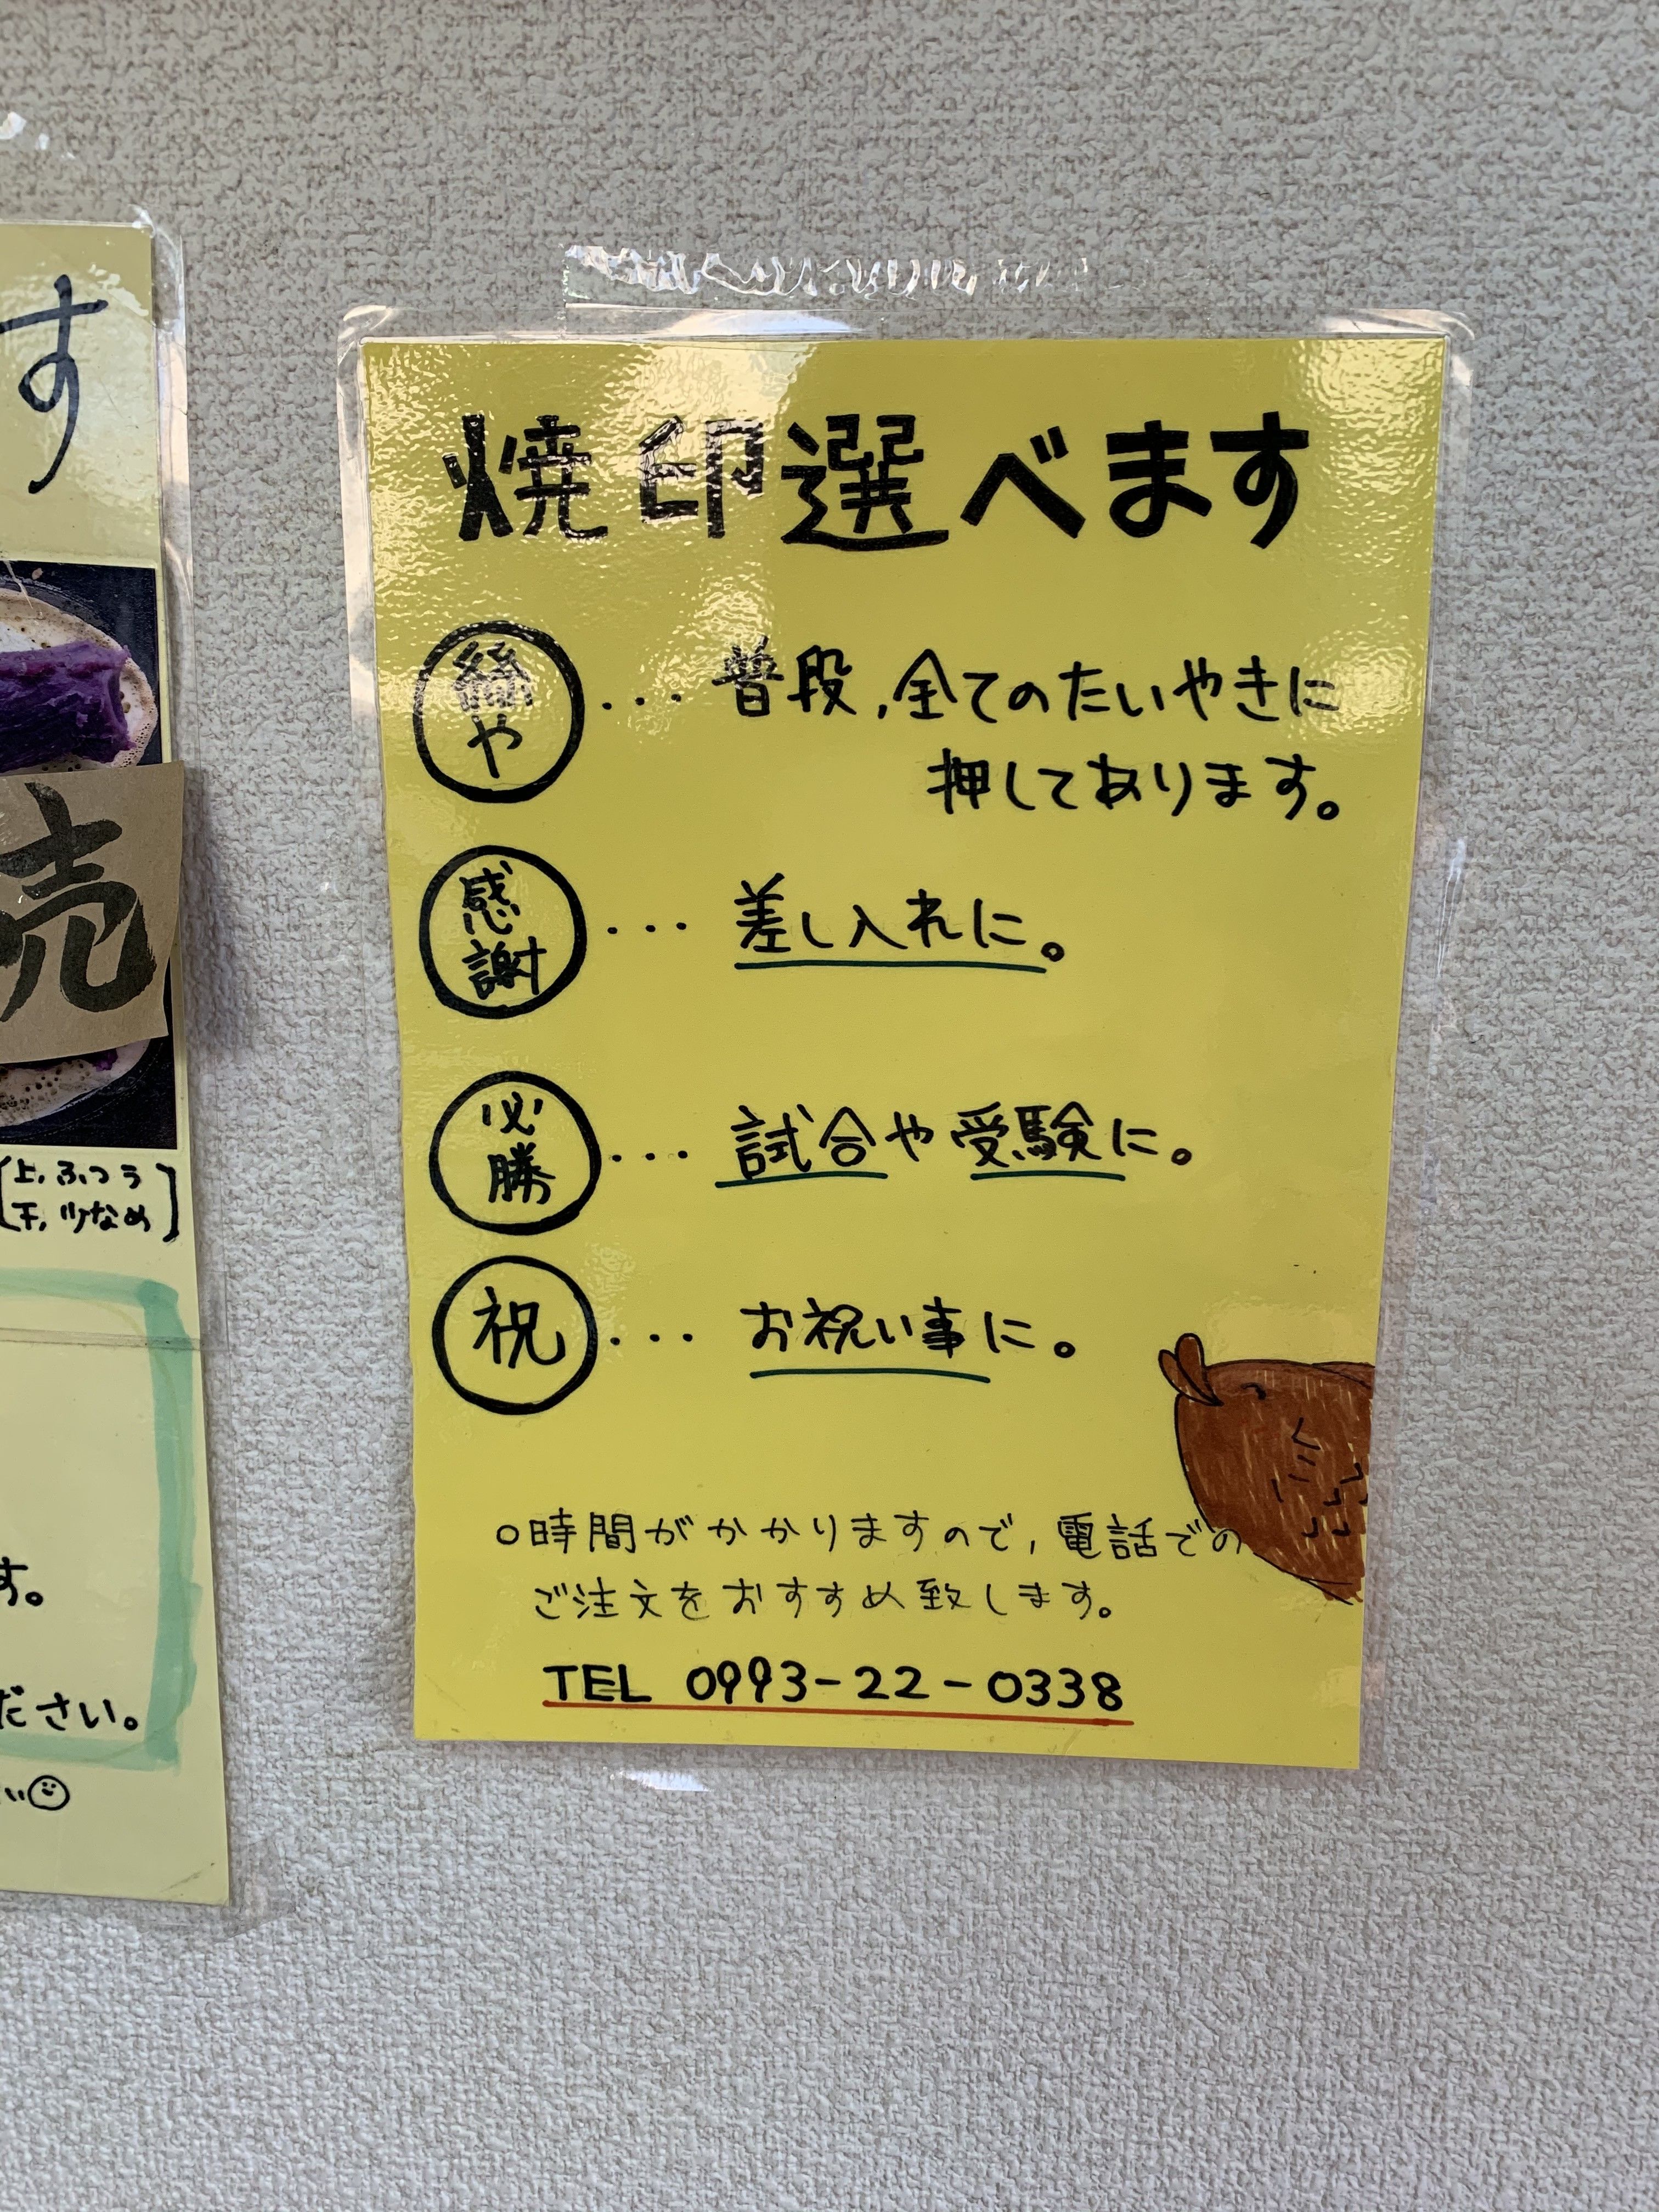 す
売
上.ふつう
下.少なめ
す。
ださい。
焼印選べます
絲や
...普段,全てのたいやきに
押してあります。
感謝
...差し入れに。
必勝
...試合や受験に。
祝
...お祝い事に。
○時間がかかりますので,電話での
ご注文をおすすめ致します。
TEL 0993-22-0338